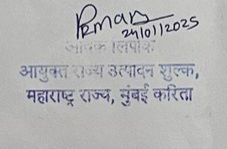 24/01/2025
लिपीक
आयुक्त राज्य उत्पादन शुल्क,
महाराष्ट्र राज्य, मुंबई करिता